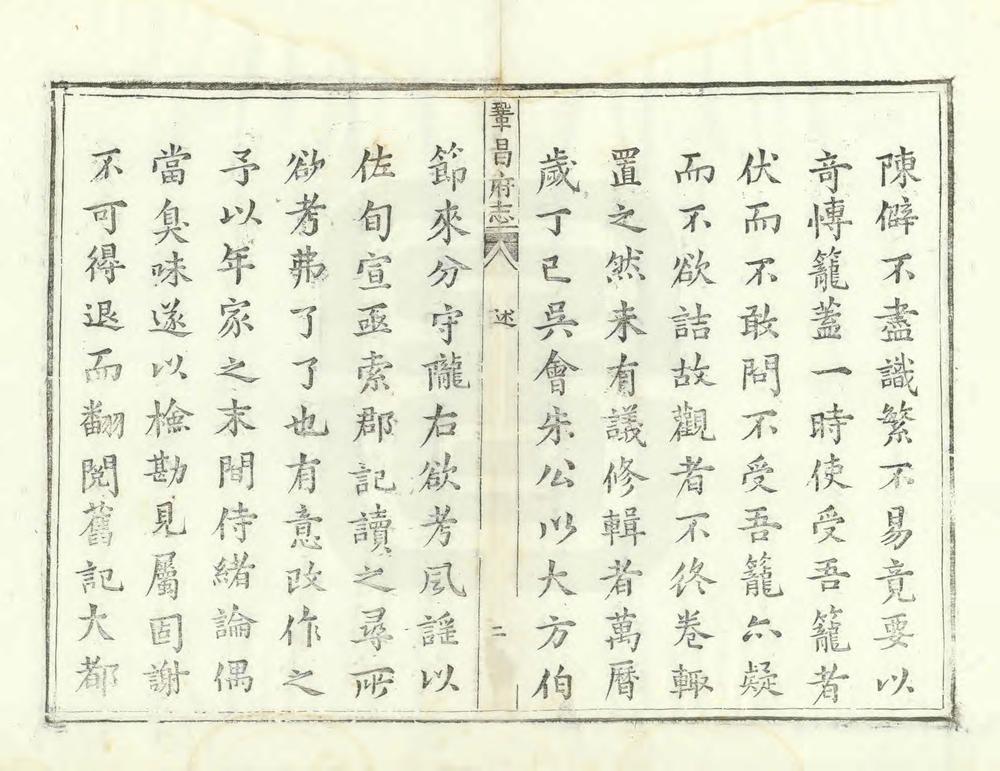 陳僻不盡識繁不易竟要以
竒愽籠蓋一時使受吾籠者
伏而不敢問不受吾籠亦疑
而不欲詰故觀者不終卷輙
置之然未有議修輯者萬曆
歲丁巳吳會朱公以大方伯
鞏昌府志
述
二
節來分守隴右欲考風謡以
佐旬宣亟索郡記讀之尋所
欲考弗了了也有意改作之
予以年家之末間侍緒論偶
當臭味遂以檢勘見屬固謝
不可得退而翻閱舊記大都